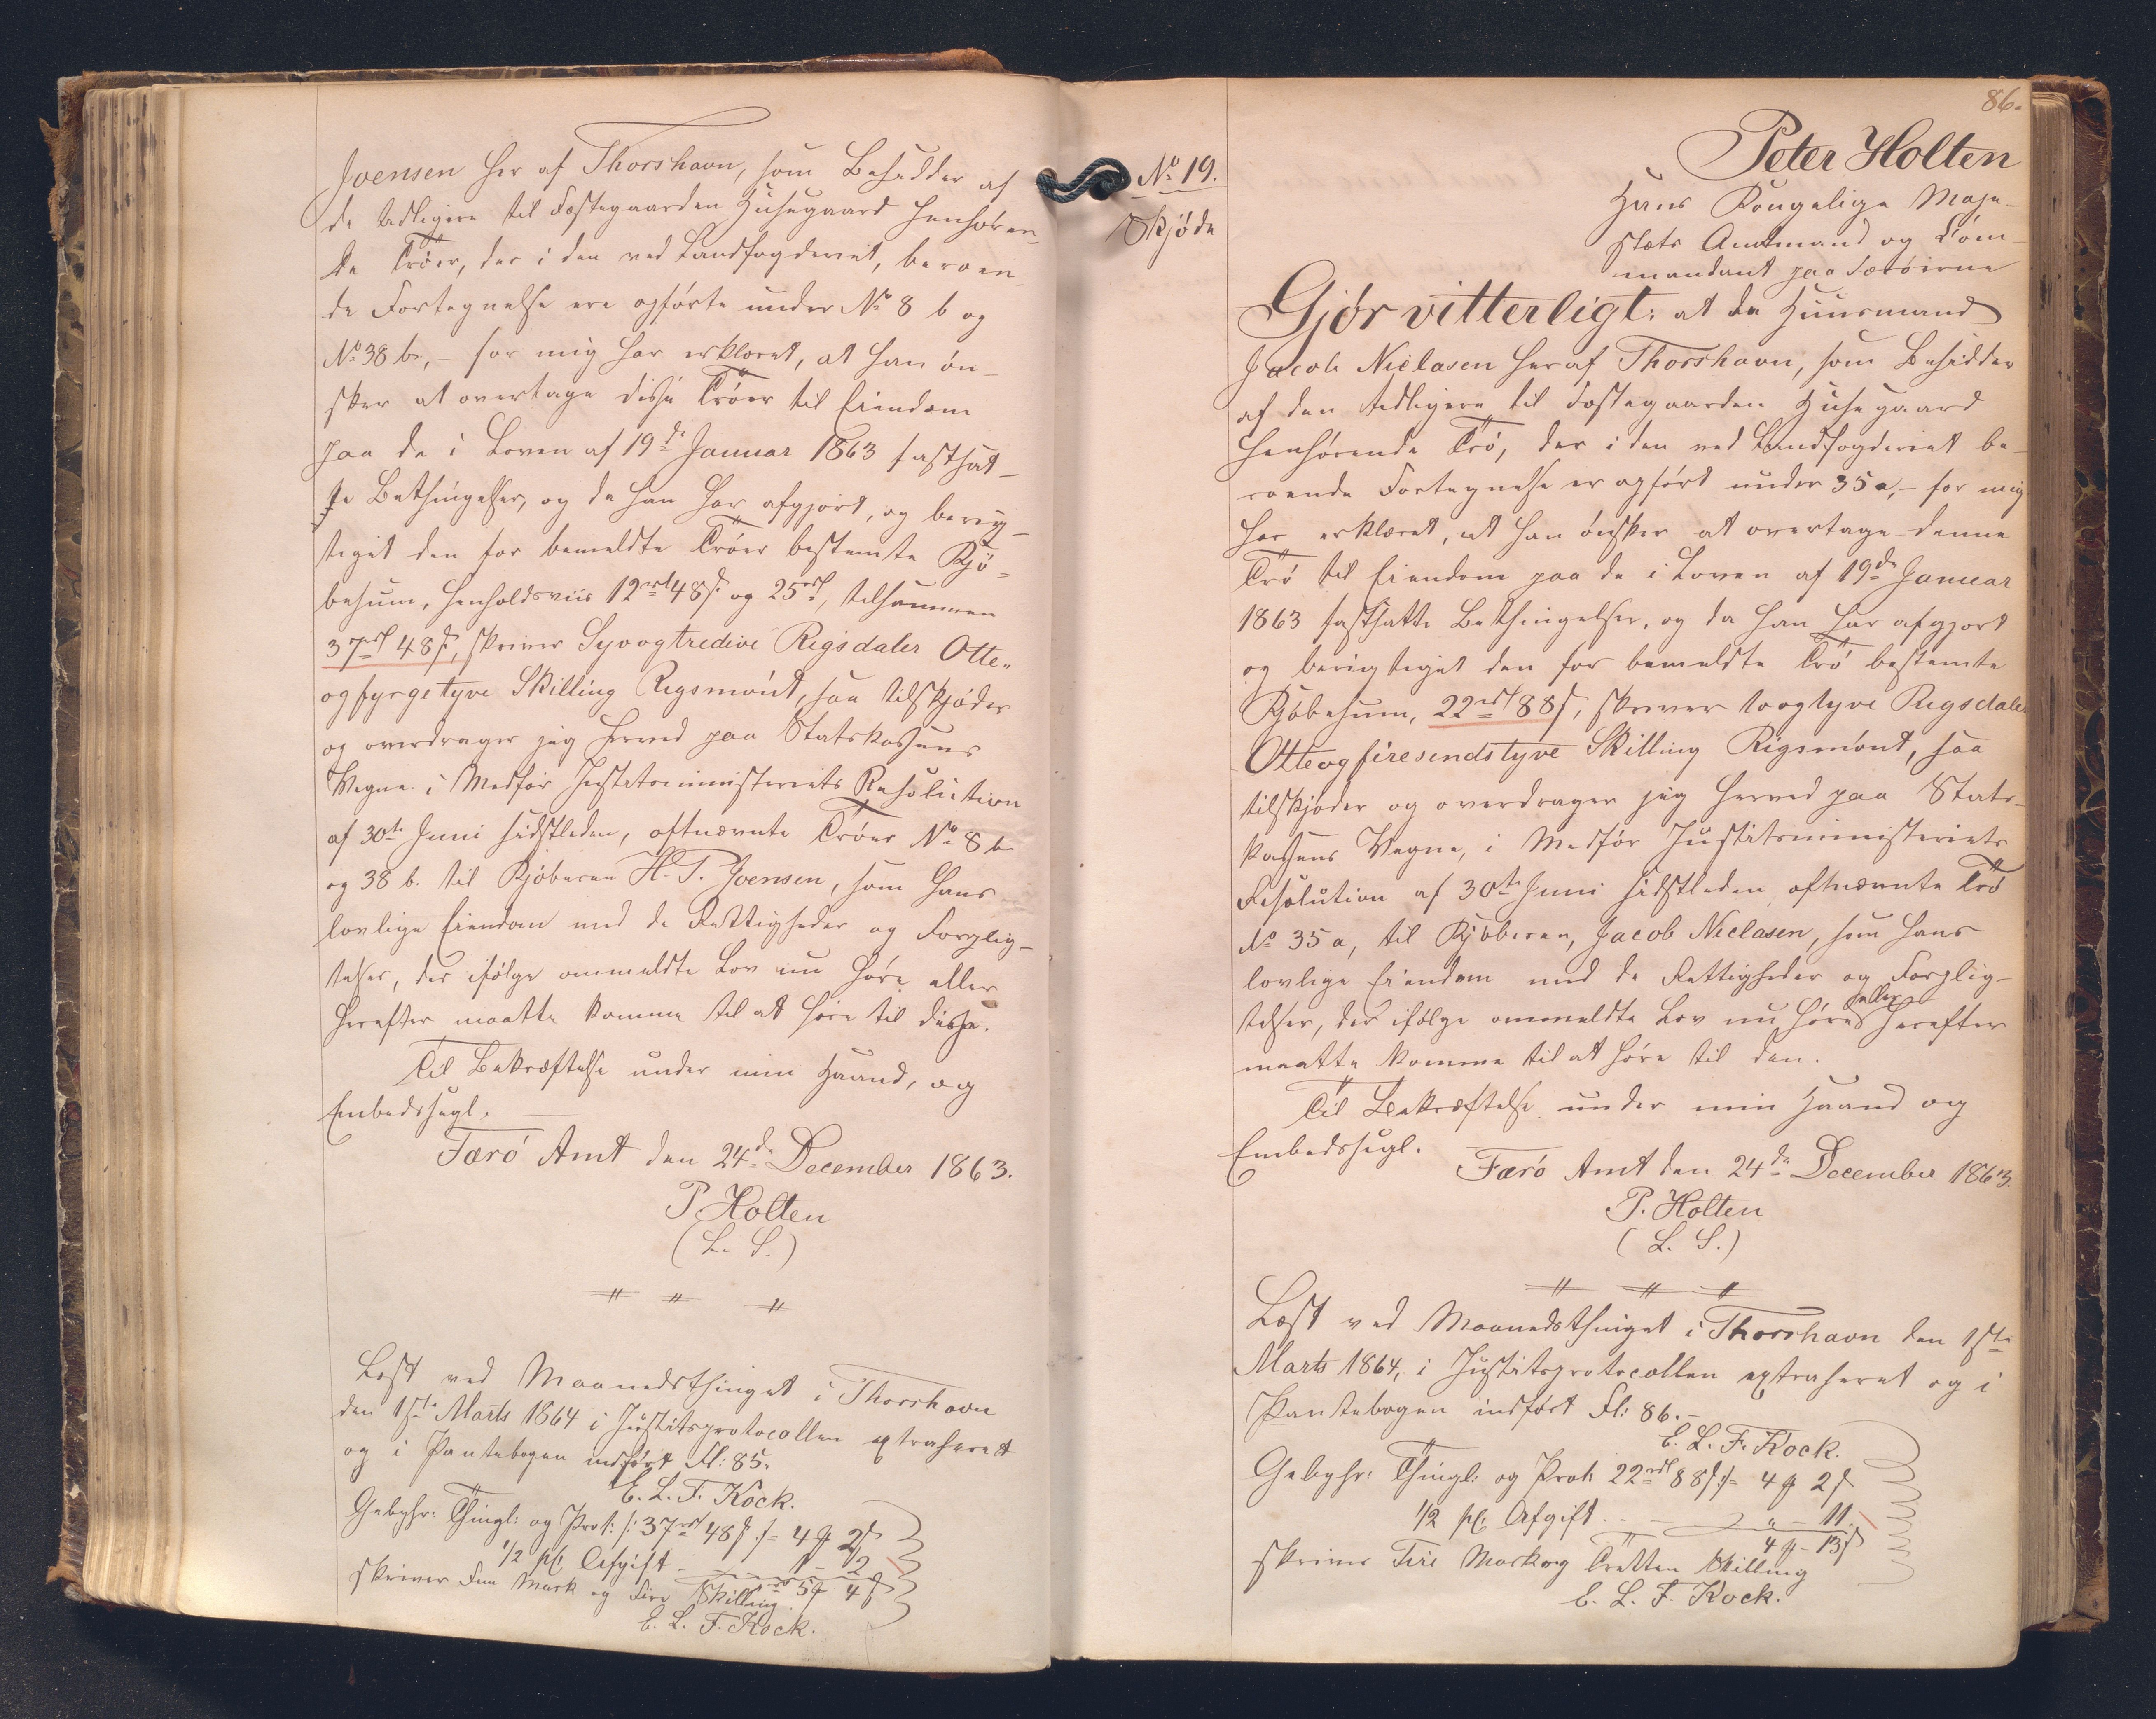 Joensen her af Thorshavn, som Besidder af
de tidligere til Fæstegaarden Husegaard henhøren-
de Trøer, der i den ved Landfogderiet, beroen-
de Fortegnelse ere opførte under No 8 b og
No 38 b, – for mig har erklæret, at han øn-
sker at overtage disse Trøer til Eiendom
paa de i Loven af 19de Januar 1863 fastsat-
te Bethingelser, og da han har afgjort, og berig-
tiget den for bemeldte Trøer bestemte Kjø-
besum, henholdsviis 12rd 48ß og 25rd, tilsammen
37rd 48ß, skriver Syvogtredive Rigsdaler Otte-
ogfyrgetyve Skilling Rigsmønt, saa tilskjøder
og overdrager jeg herved paa Statskassens
Vegne i Medfør Justitsministeriets Resolution
af 30te Juni sidstleden, oftnævnte Trøer No 8 b
og 38 b. til Kjøberen H. P. Joensen, som hans
lovlige Eiendom med de Rettigheder og Forplig-
telser, der ifølge ommeldte Lov nu høre eller
herefter maatte komme til at høre til disse.
Til Bekræftelse under min Haand, og
Embedssegl.
Færø Amt den 24de December 1863.
P. Holten
(L. S.)
Læst ved Maanedsthinget i Thorshavn
den 1ste Marts 1864 i Justitsprotocollen extraheret
og i Pantebogen indført Fl: 85.
E. L. F. Kock.
Gebyhr: Thingl: og Prot: /: 37rd 48ß :/ = 4 ₰ 2ß
1/2 pC Afgift – 1 – 2
5₰ 4ß
skriver Fem Mark og Fire Skilling
E. L. F. Kock.
86.
No 19.
Skjøde
Peter Holten
Hans Kongelige Maje-
stæts Amtmand og Com-
mandant paa Færøerne
Gjør vitterligt: at da Huusmand
Jacob Niclasen her af Thorshavn, som Besidder
af den tidligere til Fæstegaarden Husegaard
henhørende Trø, der i den ved Landfogderiet be-
roende Fortegnelse er opført under 35 a, – for mig
har erklæret, at han ønsker at overtage denne
Trø til Eiendom paa de i Loven af 19de Januar
1863 fastsatte Bethingelser, og da han har afgjort
og berigtiget den for bemeldte Trø bestemte
Kjøbesum, 22rd 88ß, skriver toogtyve Rigsdaler
Otteogfiresindstyve Skilling Rigsmønt, saa
tilskjøder og overdrager jeg herved paa Stats-
kassens Vegne, i Medfør Justitsministeriets
Resolution af 30te Juni sidstleden, oftnævnte Trø
No 35 a, til Kjøberen, Jacob Niclasen, som hans
lovlige Eiendom med de Rettigheder og Forplig-
telser, der ifølge ommeldte Lov nu høre eller herefter
maatte komme til at høre til den.
Til Bekræftelse under min Haand og
Embedssegl.
Færø Amt den 24de December 1863.
P. Holten
(L. S.)
Læst ved Maanedsthinget i Thorshavn den 1ste
Marts 1864, i Justitsprotocollen extraheret og i
Pantebogen indført Fl: 86. –
E. L. F. Kock.
Gebyhr: Thingl: og Prot: 22rd 88ß :/ = 4 ₰ 2ß
1/2 pC Afgift . . – " – 11.
4₰ – 13ß
skriver Fire Mark og Tretten Skilling
E. L. F. Kock.